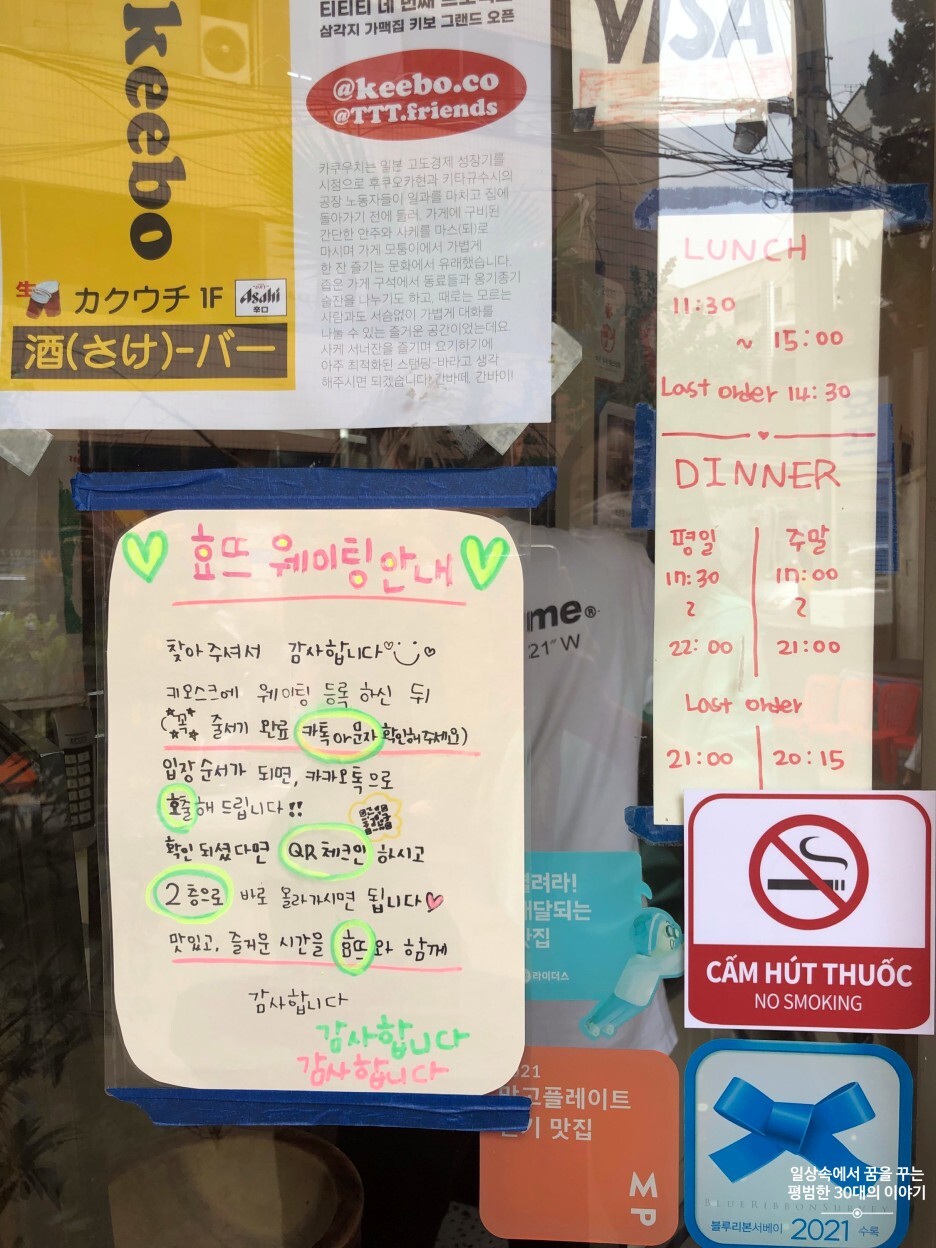 keebo
カクウチ 1F
Asahi
辛口
酒(さけ)-バー
삼각지 가맥집 키보 그랜드 오픈
@keebo.co
@TTT.friends
카쿠우치는 일본 고도경제 성장기를
시점으로 후쿠오카현과 키타큐슈시의
공장 노동자들이 일과를 마치고 집에
돌아가기 전에 들러, 가게에 구비된
간단한 안주와 사케를 마스(되)로
마시며 가게 모퉁이에서 가볍게
한 잔 즐기는 문화에서 유래했습니다.
좁은 가게 구석에서 동료들과 옹기종기
술잔을 나누기도 하고, 때로는 모르는
사람과도 서슴없이 가볍게 대화를
나눌 수 있는 즐거운 공간이었는데요
사케 서너잔을 즐기며 요기하기에
아주 최적화된 스탠딩-바라고 생각
해주시면 되겠습니다! 간바떼, 간바이!
VISA
LUNCH
11:30
~ 15:00
Last order 14:30
DINNER
평일 주말
17:30 17:00
~ ~
22:00 21:00
Last order
21:00 20:15
효뜨 웨이팅 안내
찾아 주셔서 감사합니다
키오스크에 웨이팅 등록 하신 뒤
(꼭 줄서기 완료 카톡 or 문자 확인해주세요)
입장 순서가 되면, 카카오톡으로
호출해 드립니다!!
확인 되셨다면 QR체크인 하시고
2층으로 바로 올라가시면 됩니다
맛있고, 즐거운 시간을 효뜨와 함께
감사합니다
감사합니다
감사합니다
me®
21" W
라이더스
CẤM HÚT THUỐC
NO SMOKING
망고플레이트
인기 맛집
MP
BLUE RIBBON SURVEY
블루리본서베이 2021 수록
일상속에서 꿈을 꾸는
평범한 30대의 이야기